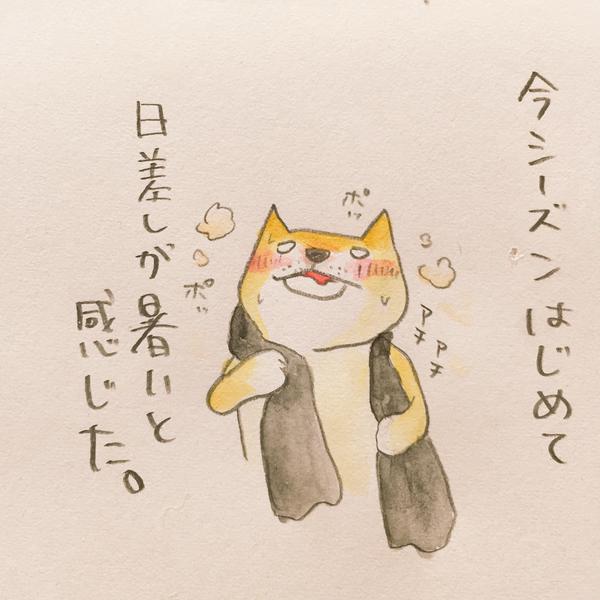 今シーズンはじめて
日差しが暑いと
感じた。
ポッ
ポッ
アチ
アチ